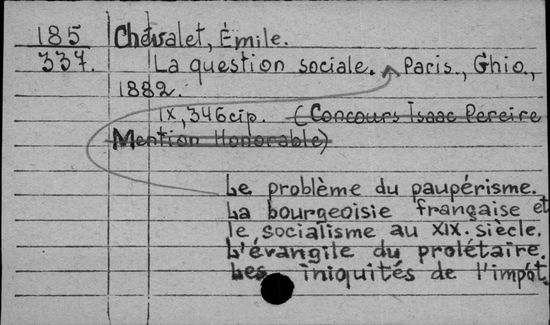 185 Chevalet, Émile.
337. La question sociale. Paris., Ghio.,
1882.
IX, 346cip. (Concours Isaac Pereire
Mention Honorable)
Le problème du paupérisme.
La bourgeoisie française et
le socialisme au XIX. siècle.
L'évangile du prolétaire.
Les iniquités de l'impôt.